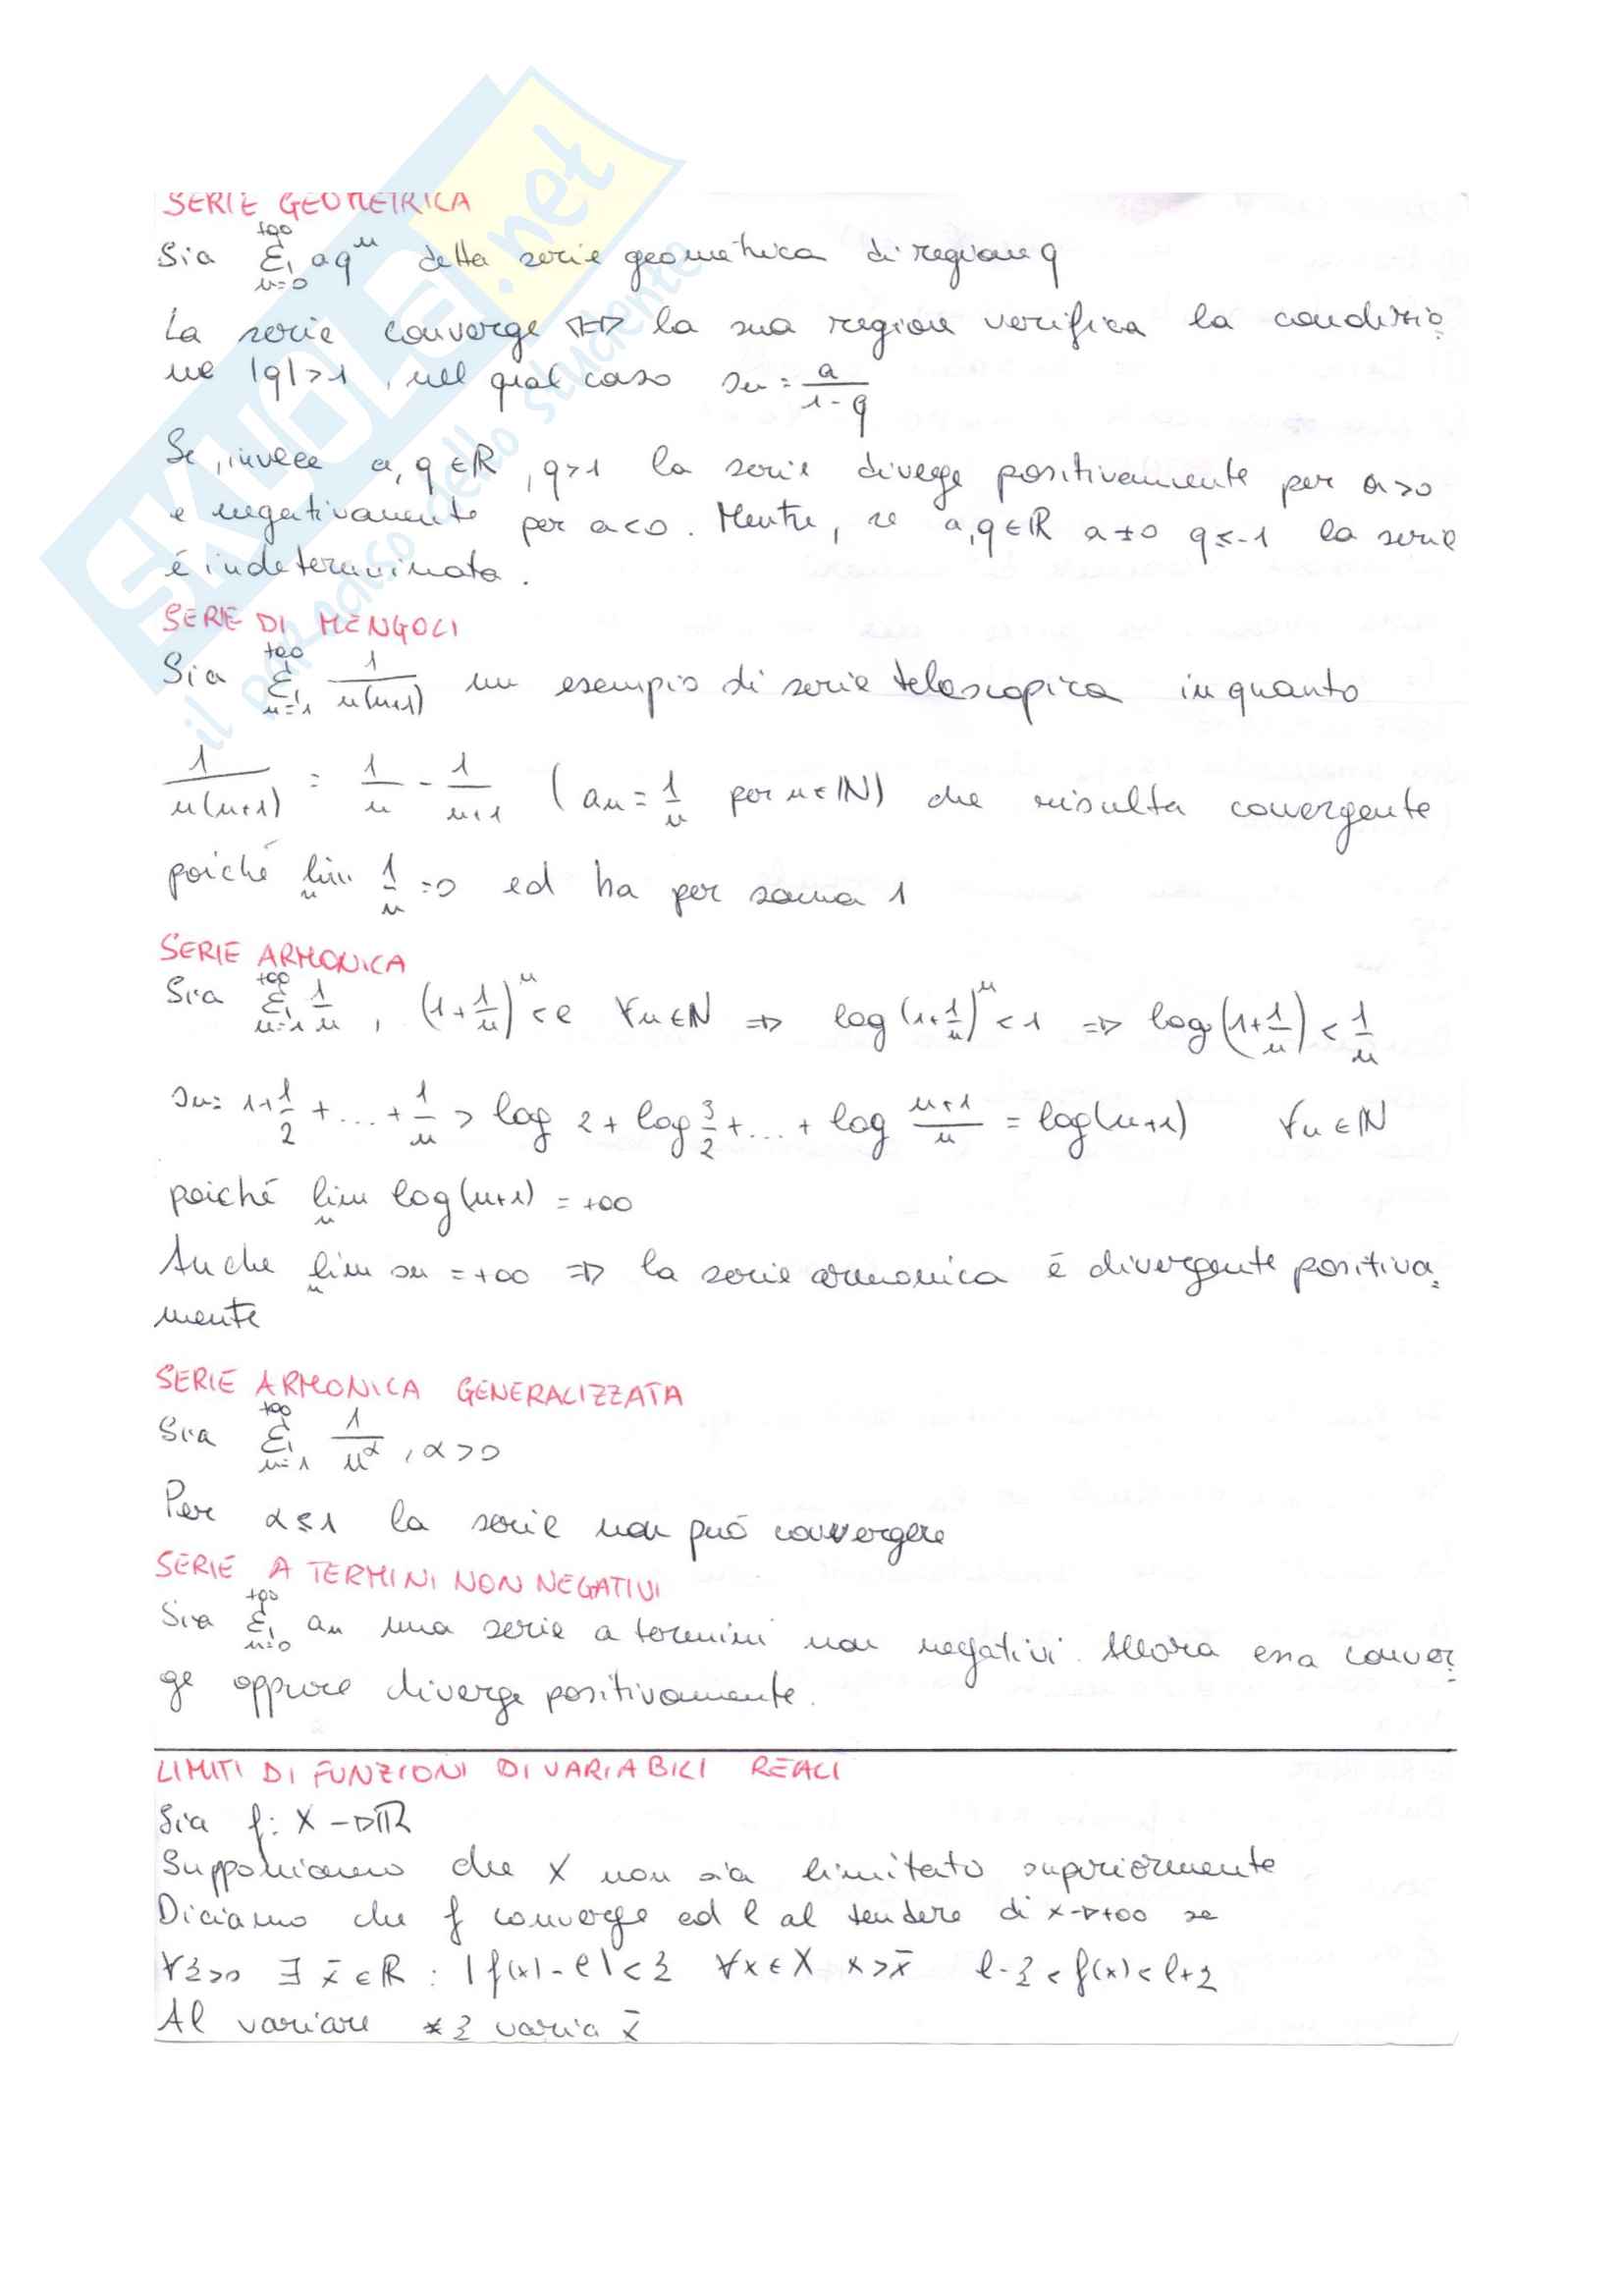 SKUOLA.net
il paradiso dello studente
SERIE GEOMETRICA
Sia +∞ Σ n=0 aqⁿ detta serie geometrica di regione q
La serie converge ⟺ la sua region verifica la condizio=
ne |q|>1, nel qual caso sn = a/(1-q)
Se, invece a, q ∈ ℝ, q>1 la serie diverge positivamente per a>0
e negativamente per a<0. Mentre, se a,q ∈ ℝ a≠0 q≤-1 la serie
é indeterminata.
SERIE DI MENGOLI
Sia +∞ Σ n=1 1/(n(n+1)) un esempio di serie telescopica in quanto
1/(n(n+1)) = 1/n - 1/(n+1) (an = 1/n per n∈ℕ) che risulta convergente
poiché lim n 1/n =0 ed ha per somma 1
SERIE ARMONICA
Sia +∞ Σ n=1 1/n, (1+1/n)ⁿ<e ∀n∈ℕ ⇒ log(1+1/n)ⁿ<1 ⇒ log(1+1/n)<1/n
sn= 1+1/2+...+1/n > log 2 + log 3/2+...+ log (n+1)/n = log(n+1) ∀n∈ℕ
poiché lim n log(n+1) = +∞
Anche lim n sn = +∞ ⇒ la serie armonica é divergente positiva=
mente
SERIE ARMONICA GENERALIZZATA
Sia +∞ Σ n=1 1/n^α, α>0
Per α≤1 la serie non puó convergere
SERIE A TERMINI NON NEGATIVI
Sia +∞ Σ n=0 an una serie a termini non negativi. Allora essa conver=
ge oppure diverge positivamente.
LIMITI DI FUNZIONI DI VARIABILI REALI
Sia f: X → ℝ
Supponiamo che X non sia limitato superiormente
Diciamo che f converge ed l al tendere di x→+∞ se
∀ξ>0 ∃ x̄ ∈ ℝ : |f(x)-l|<ξ ∀x∈X x>x̄ l-ξ<f(x)<l+ξ
Al variare ξ varia x̄